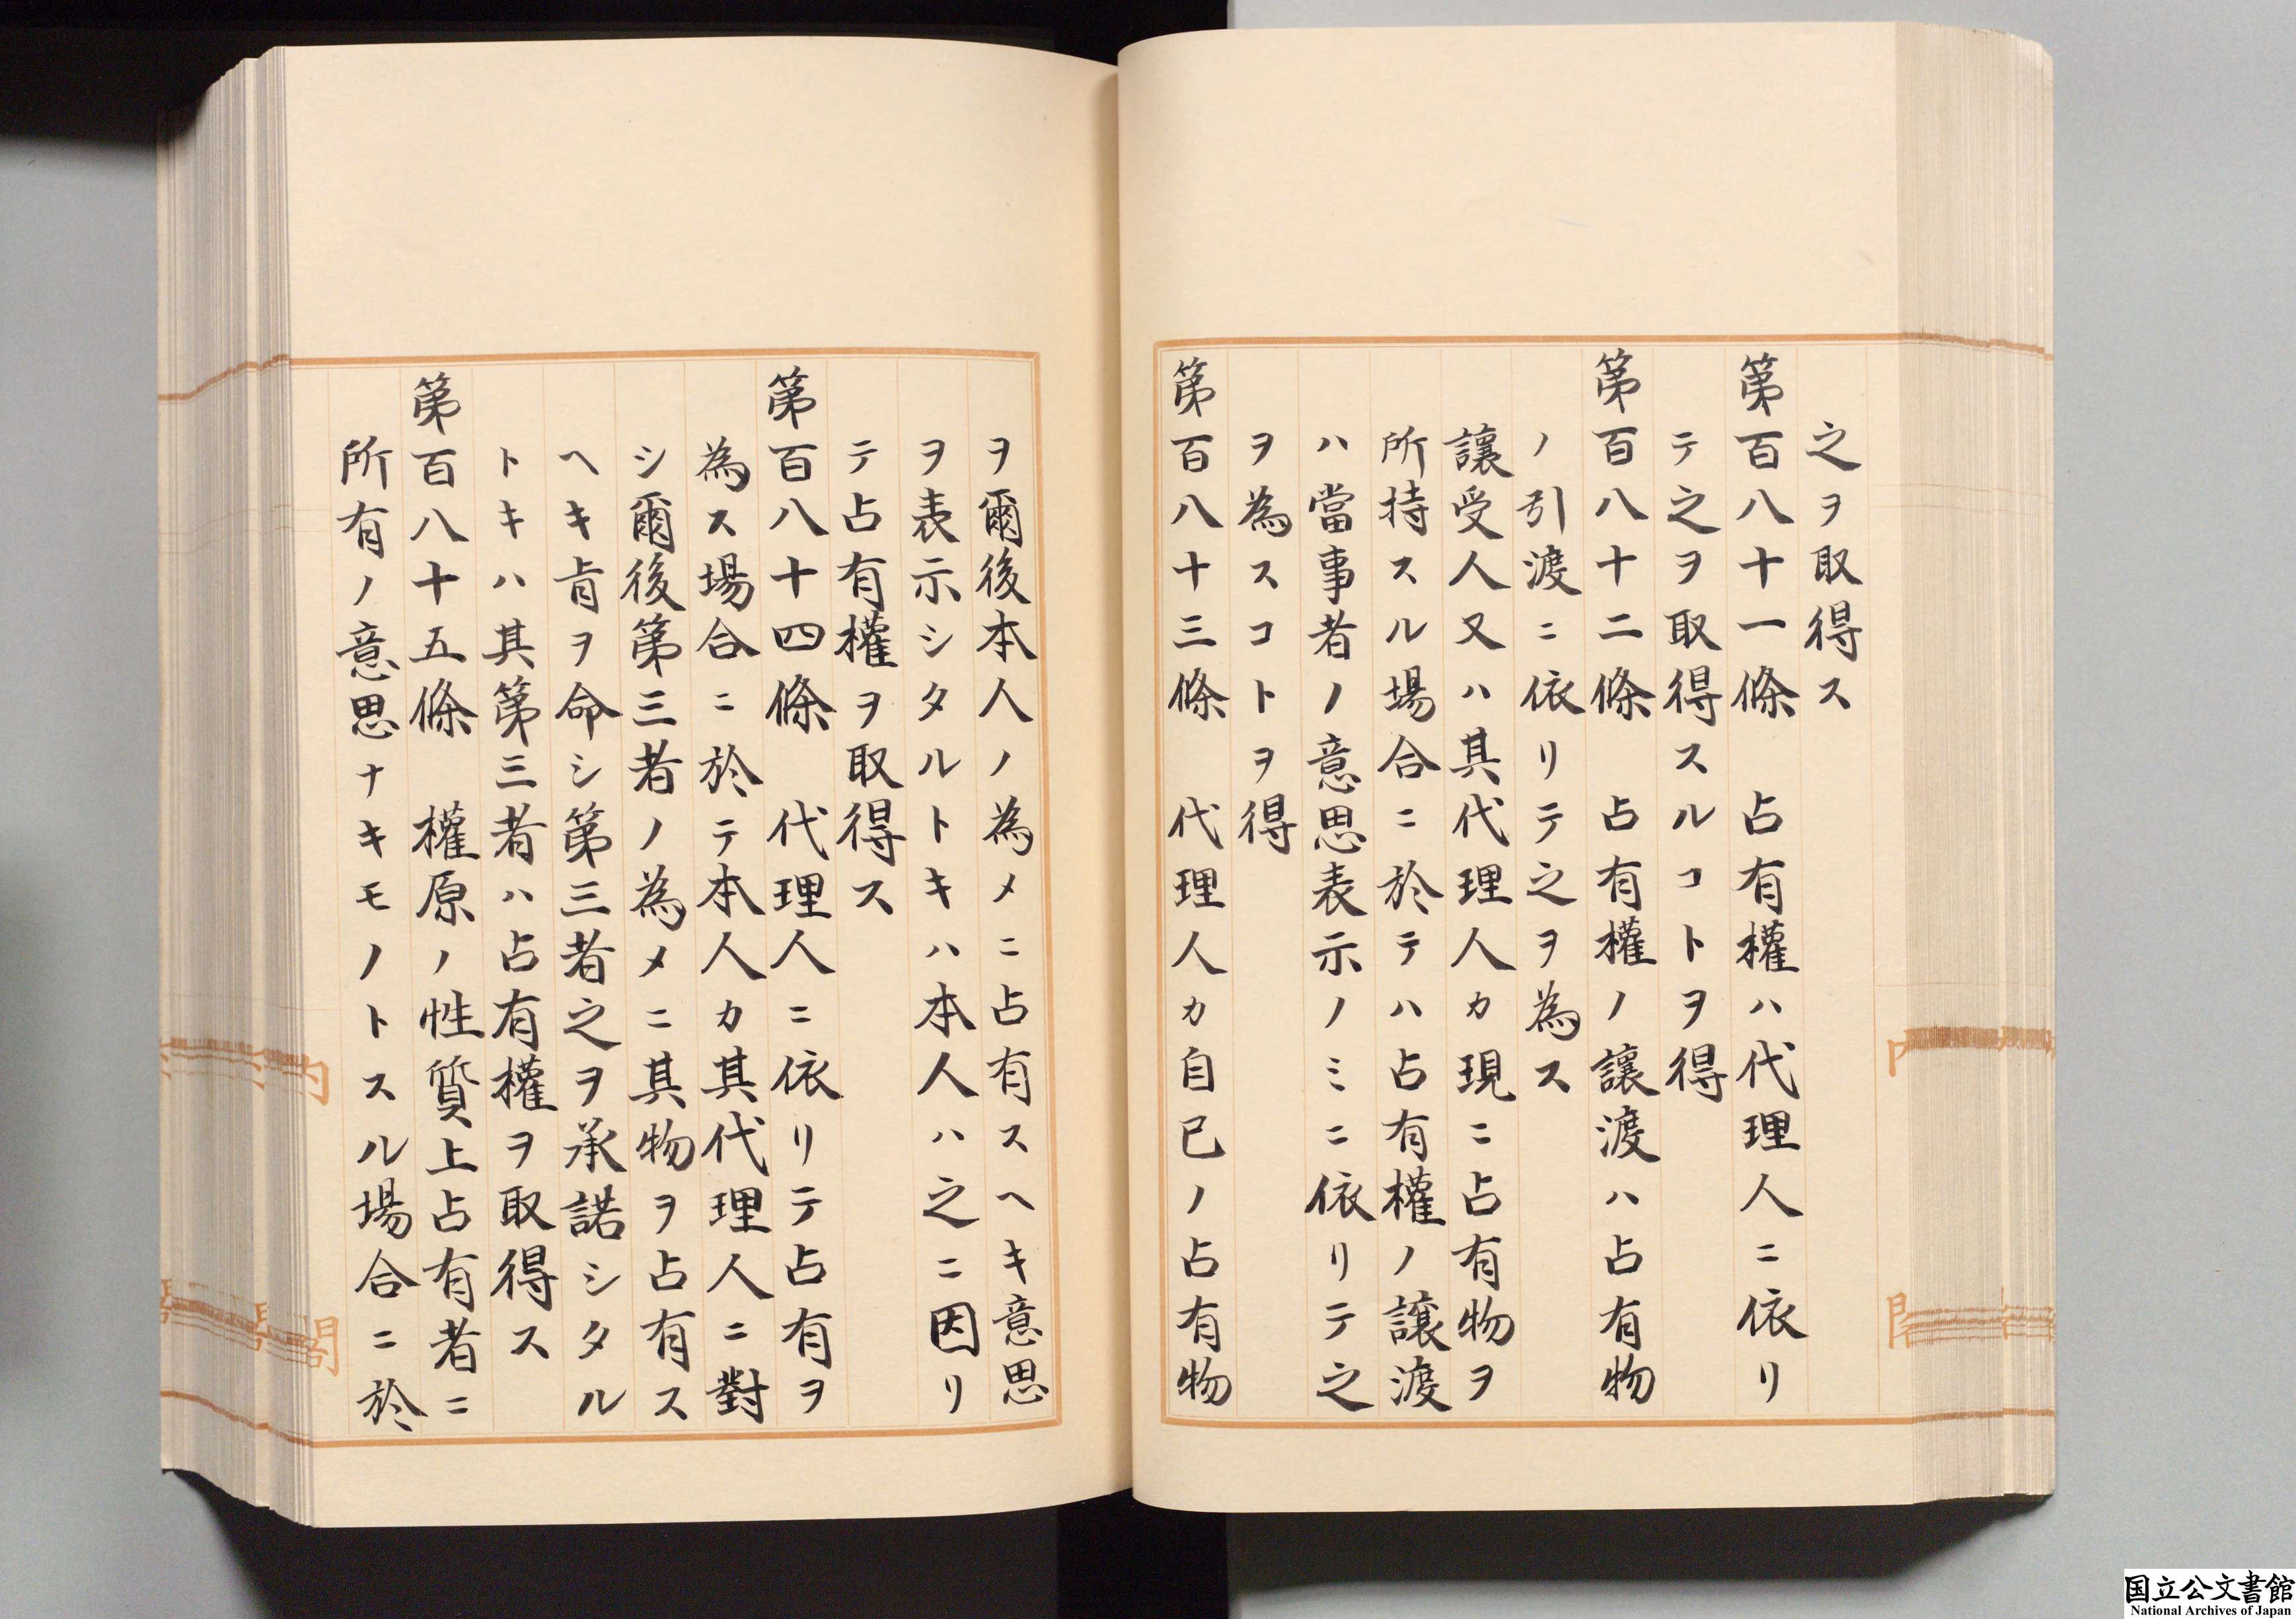 之ヲ取得ス
第百八十一條　占有權ハ代理人ニ依リ
テ之ヲ取得スルコトヲ得
第百八十二條　占有權ノ讓渡ハ占有物
ノ引渡ニ依リテ之ヲ為ス
讓受人又ハ其代理人カ現ニ占有物ヲ
所持スル場合ニ於テハ占有權ノ讓渡
ハ當事者ノ意思表示ノミニ依リテ之
ヲ為スコトヲ得
第百八十三條　代理人カ自己ノ占有物
ヲ爾後本人ノ為メニ占有スヘキ意思
ヲ表示シタルトキハ本人ハ之ニ因リ
テ占有權ヲ取得ス
第百八十四條　代理人ニ依リテ占有ヲ
為ス場合ニ於テ本人カ其代理人ニ對
シ爾後第三者ノ為メニ其物ヲ占有ス
ヘキ旨ヲ命シ第三者之ヲ承諾シタル
トキハ其第三者ハ占有權ヲ取得ス
第百八十五條　權原ノ性質上占有者ニ
所有ノ意思ナキモノトスル場合ニ於
内閣
国立公文書館
National Archives of Japan